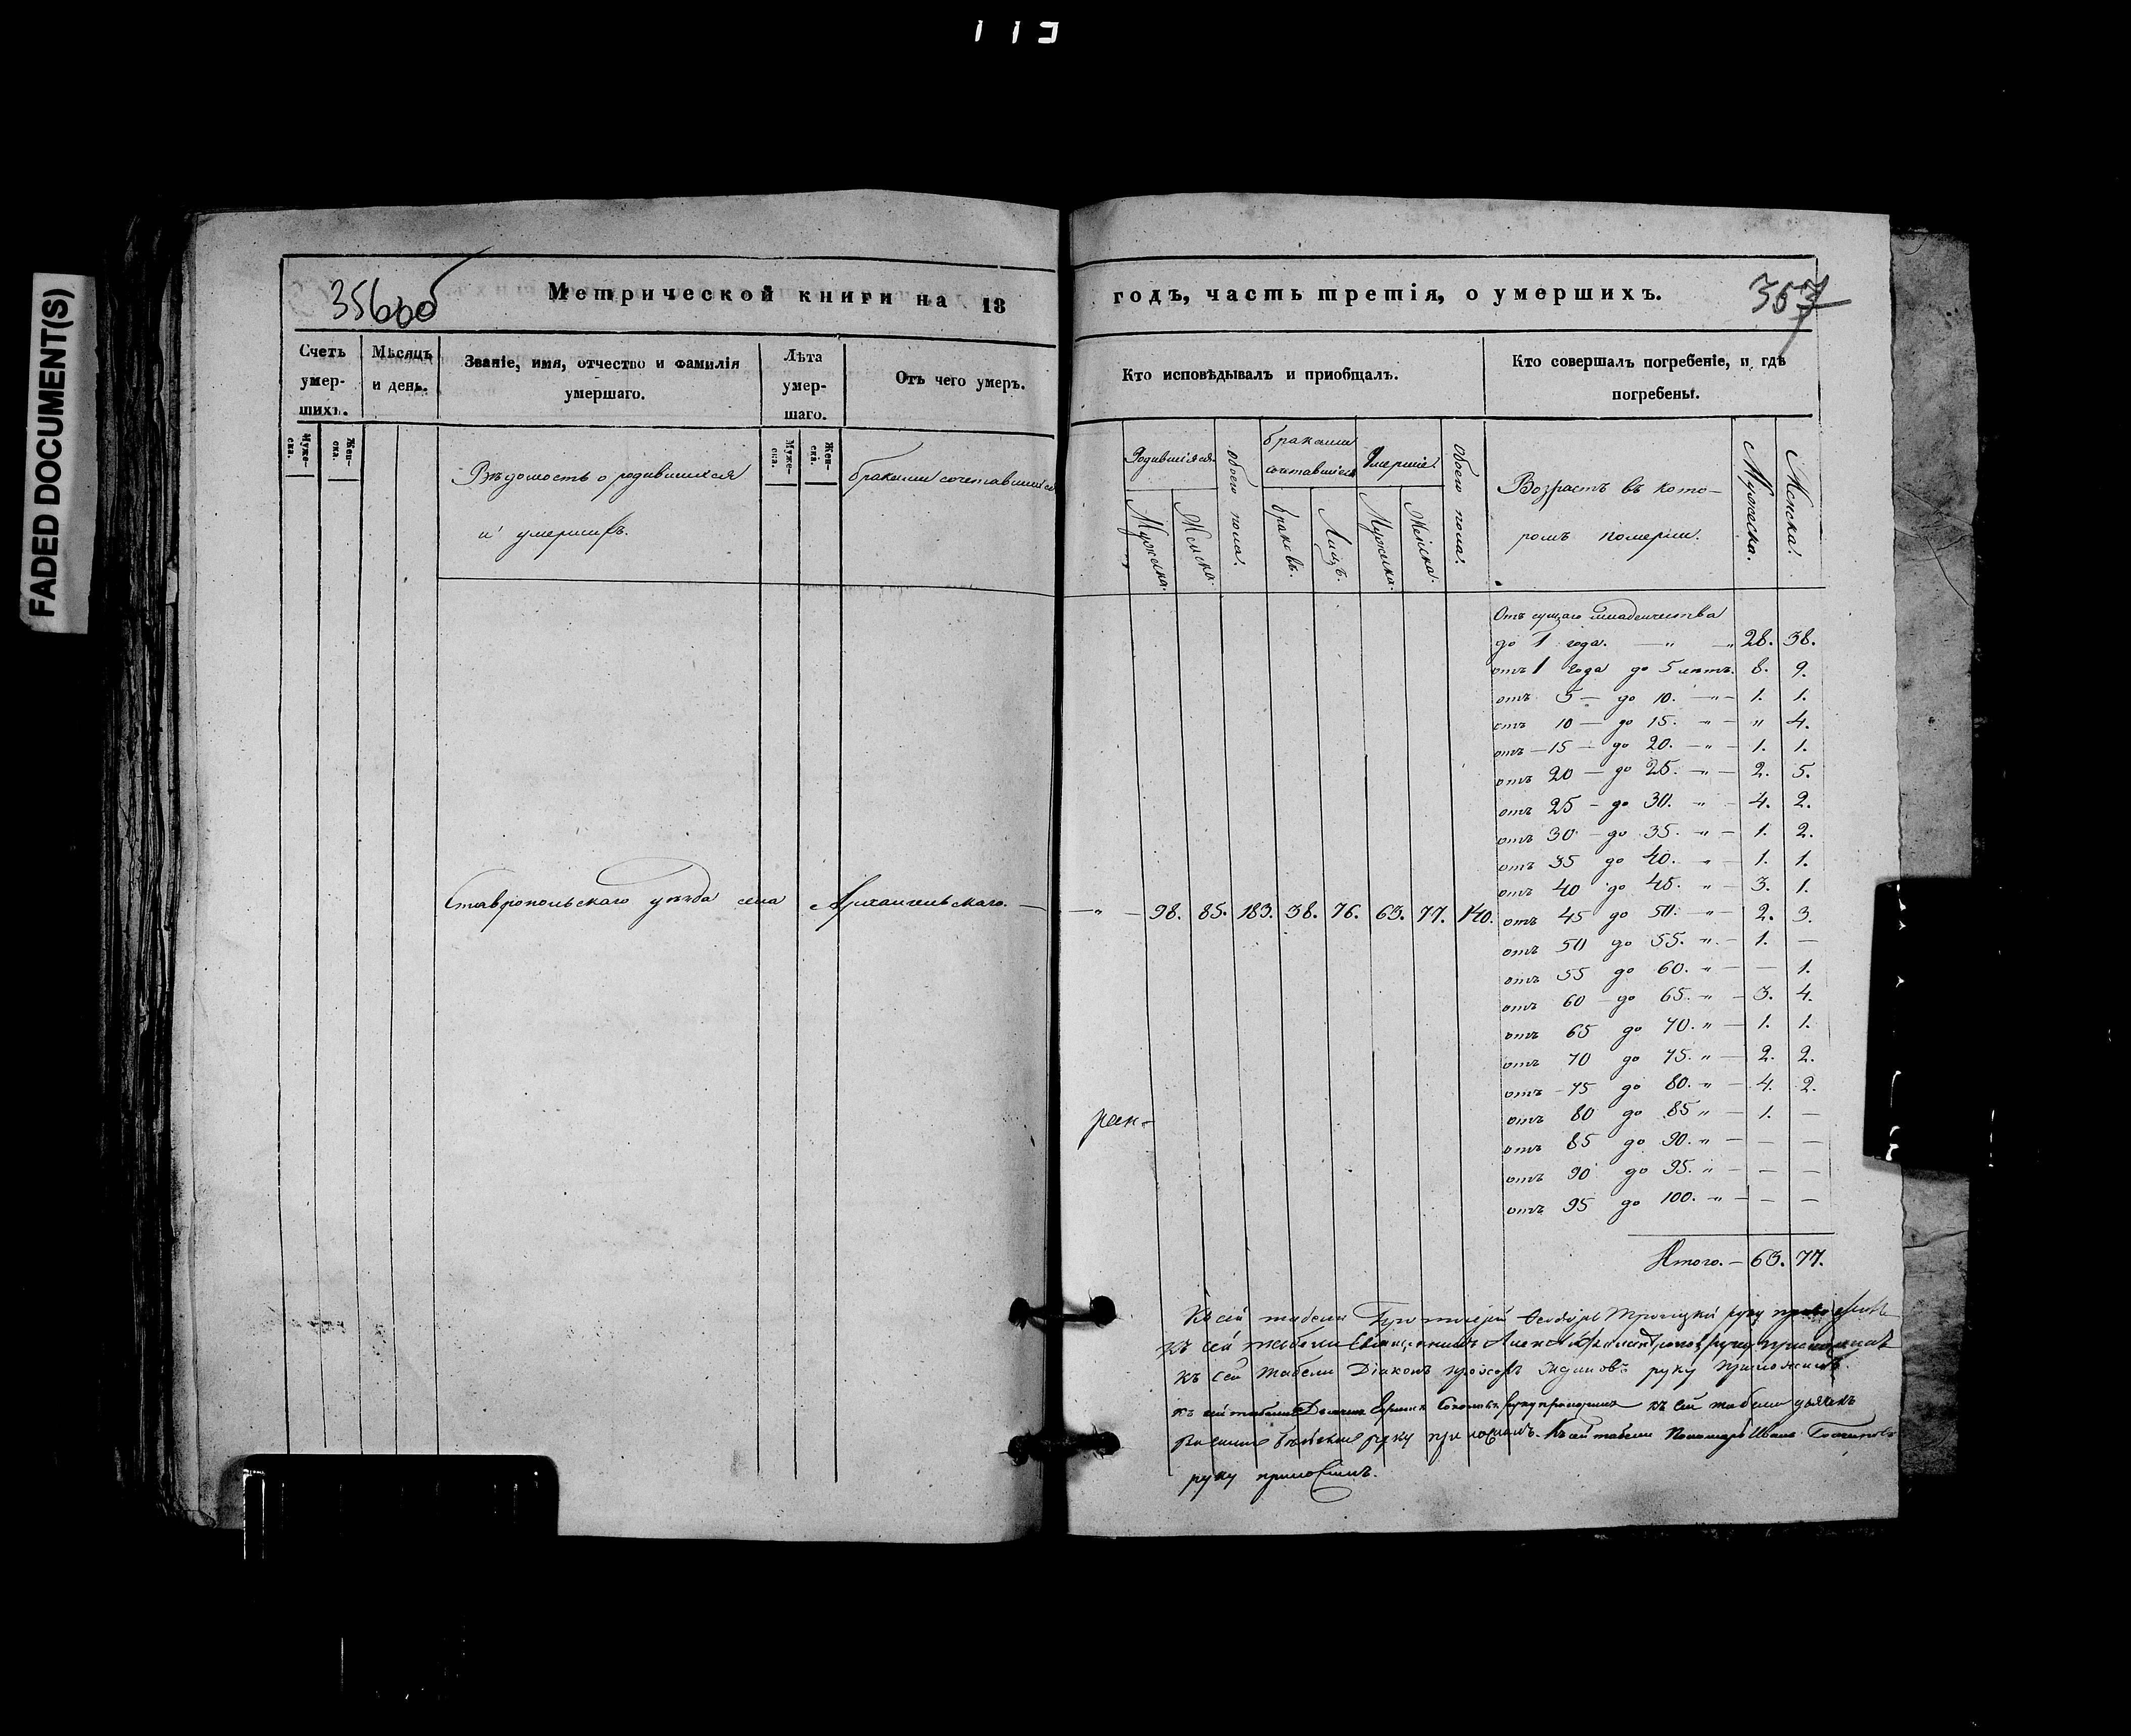 113
FADED DOCUMENT(S)
356об
Метрической книги на 18
годъ, часть третія, о умершихъ.
367
Счетъ умер-шихъ.
Мѣсяцъ и день.
Званіе, имя, отчество и фамилія умершаго.
Лѣта умер-шаго.
Отъ чего умеръ.
Кто исповѣдывалъ и приобщалъ.
Кто совершалъ погребеніе, и гдѣ погребены.
Муже-ска.
Жен-ска.
Вѣдомость о родившихся
и умершихъ.
Муже-ска.
Жен-скі.
браками сочетавшихся
Родившіяся.
обоего пола.
браками сочетавшіеся
Умершіе.
обоего пола.
Мужеска.
Женска.
браковъ.
Лицъ.
Мужеска.
Женска.
Возрастъ въ кото-
ромъ померли.
Мужеска.
Женска.
Отъ сущаго младенчества
до 1 года. — „ — „ 28. 38.
отъ 1 года до 5 лѣтъ. 8. 9.
отъ 5 — до 10. — „ — 1. 1.
отъ 10 — до 15. „ — „ 4.
отъ — 15 — до 20. — „ — 1. 1.
отъ 20 — до 25. — „ — 2. 5.
отъ 25 — до 30. „ — 4. 2.
отъ 30 — до 35. — „ — 1. 2.
отъ 35 до 40. „ — 1. 1.
отъ 40 до 45. „ — 3. 1.
Ставропольскаго уѣзда села Архангельскаго. — — „ — 98. 85. 183. 38. 76. 63. 77. 140.
отъ 45 до 50. — „ — 2. 3.
отъ 50 до 55. „ — 1. —
отъ 55 до 60. „ — — 1.
отъ 60 — до 65. „ — 3. 4.
отъ 65 до 70. „ — 1. 1.
отъ 70 до 75. „ — 2. 2.
отъ — 75 до 80. „ — 4. 2.
отъ 80 до 85 „ — 1. —
отъ 85 до 90. „ — — —
отъ 90 до 95. „ — — —
отъ 95 до 100. „ — — —
Итого. — 63. 77.
Къ сей табели Протоіерей Ѳеодоръ Троицкій руку приложилъ
къ сей табели Священникъ руку приложилъ
къ сей табели Діаконъ руку приложилъ.
къ сей табели Дьячекъ руку приложилъ къ сей табели дьячекъ
руку приложилъ. Къ сей табели Пономарь Иванъ
руку приложилъ.